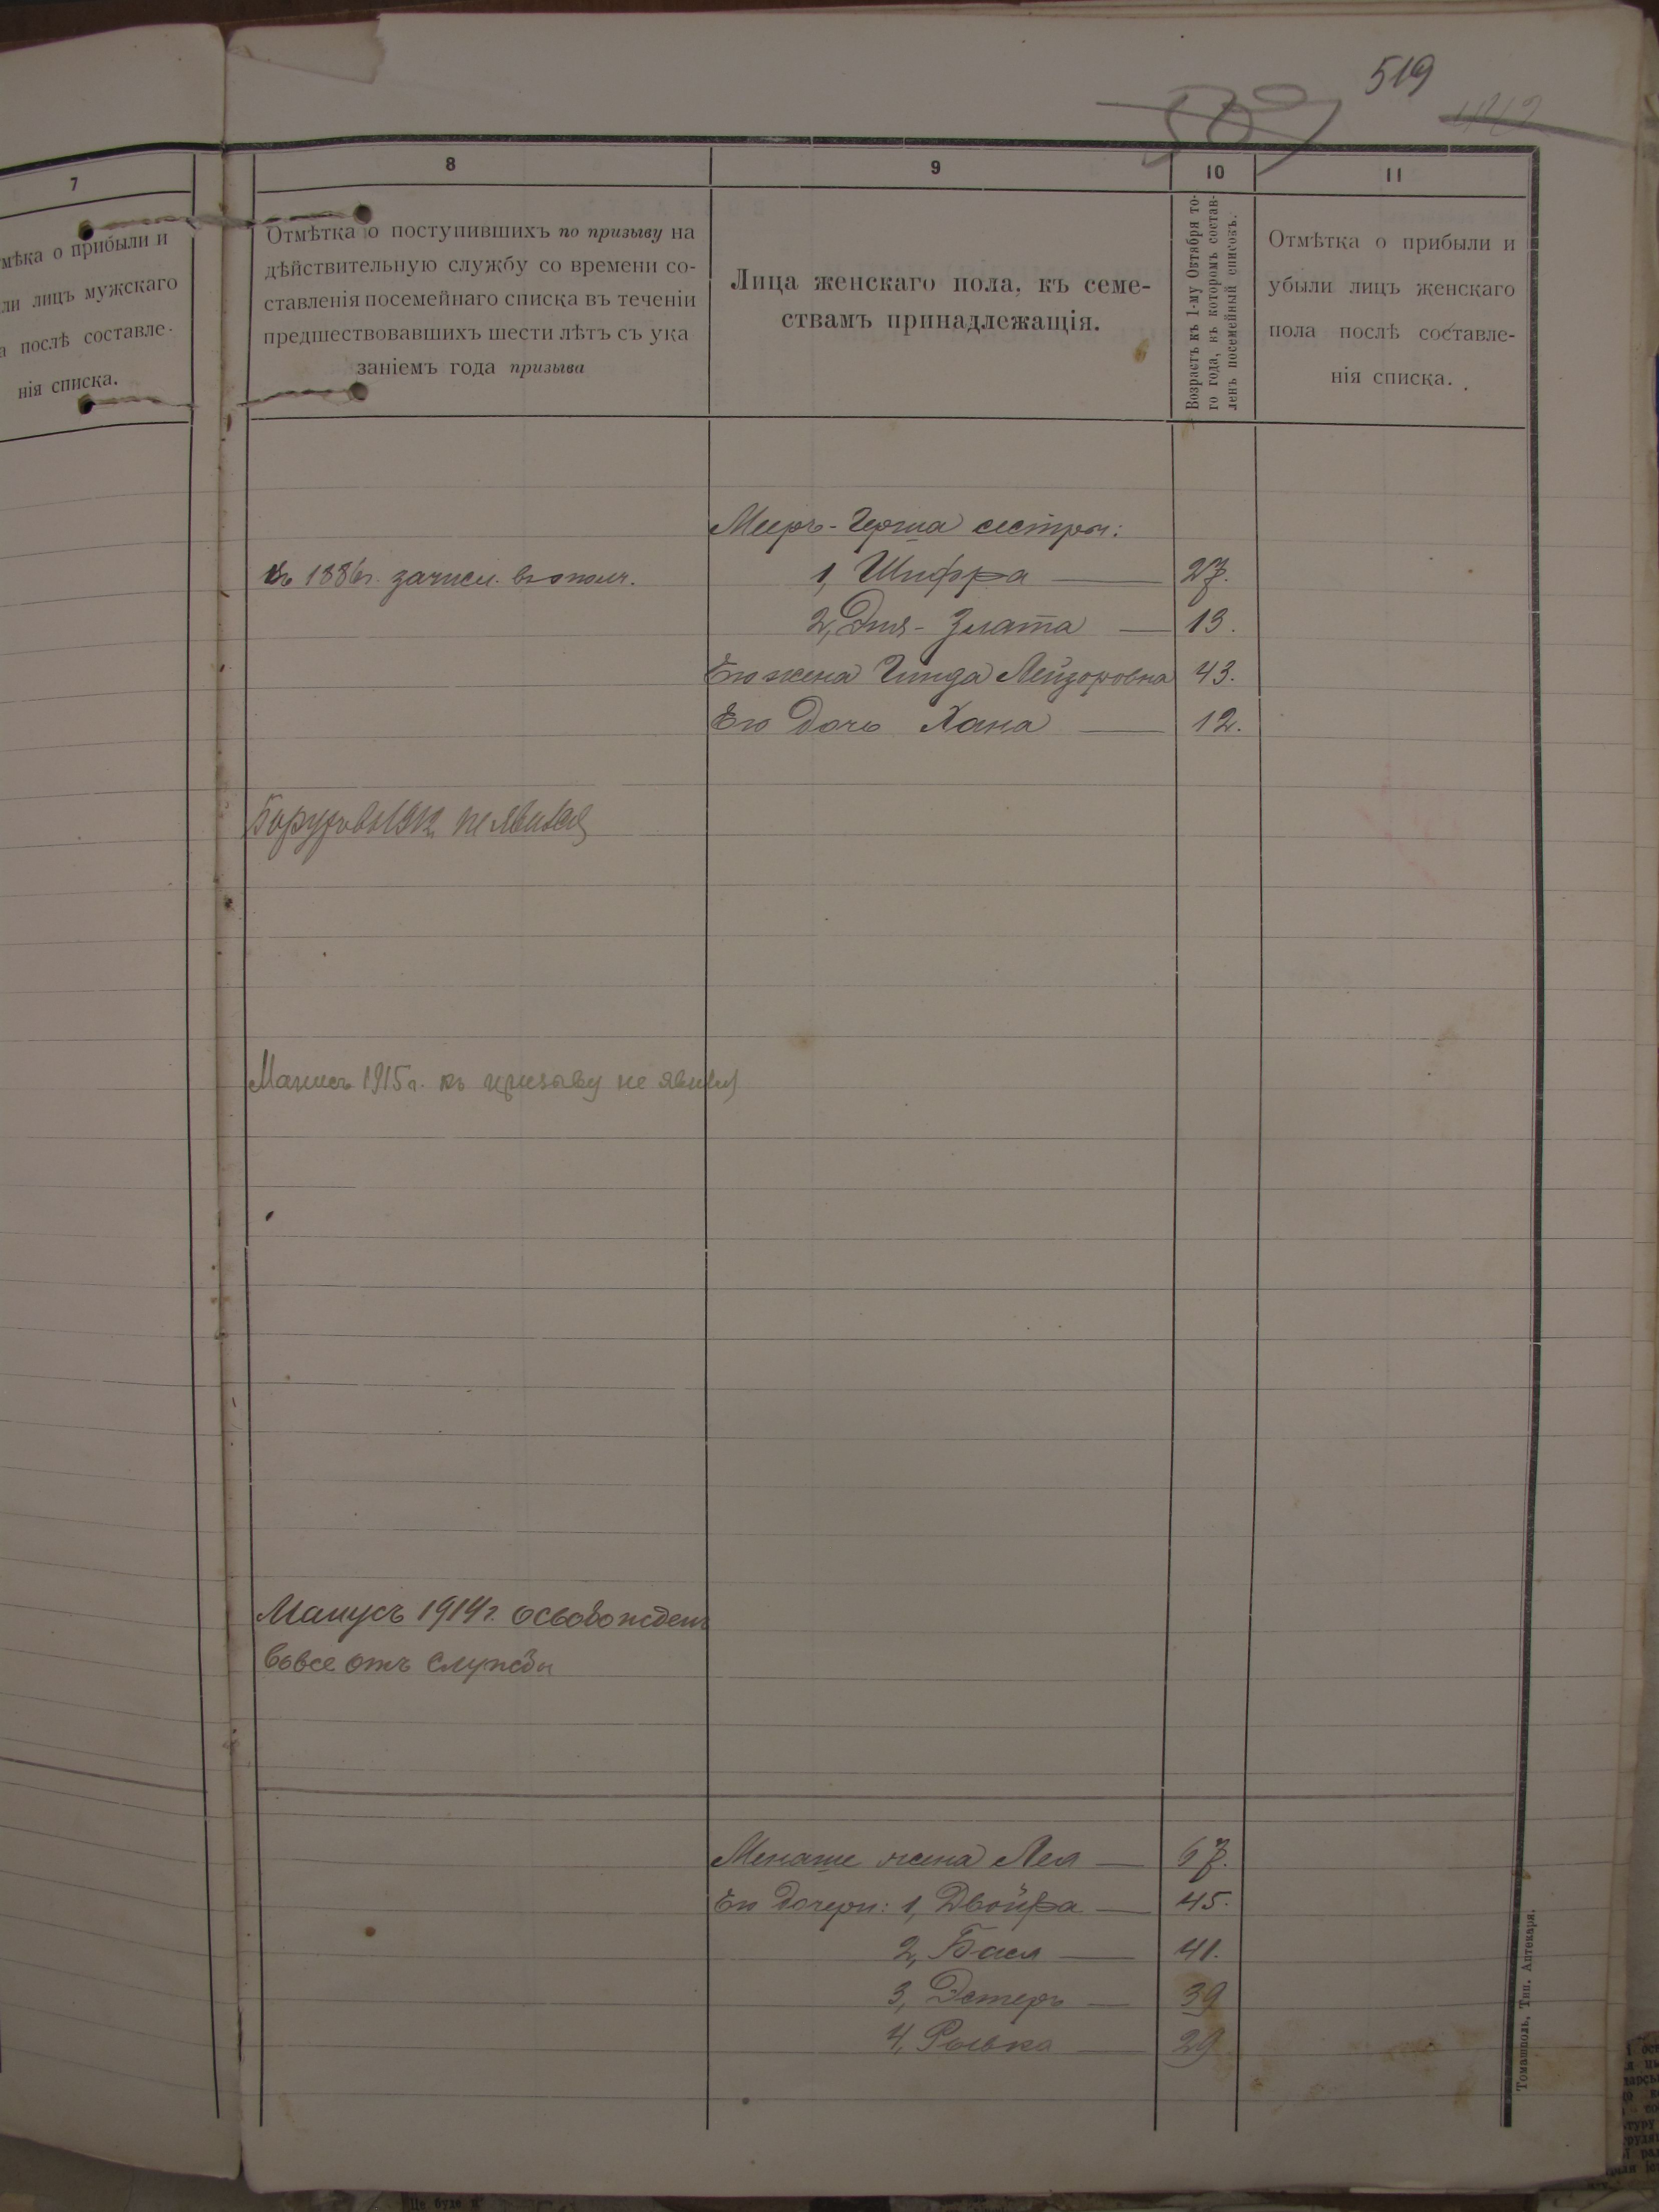 519
509
442
7
мѣка о прибыли и
ли лицъ мужскаго
а послѣ составле-
нія списка.
8
Отмѣтка о поступившихъ по призыву на
дѣйствительную службу со времени со-
ставленія посемейнаго списка въ теченіи
предшествовавшихъ шести лѣтъ съ ука
заніемъ года призыва
9
Лица женскаго пола, къ семе-
ствамъ принадлежащія.
10
Возрастъ къ 1-му Октября то-
го года, въ которомъ состав-
ленъ посемейный списокъ.
11
Отмѣтка о прибыли и
убыли лицъ женскаго
пола послѣ составле-
нія списка.
Мееръ-Герша сестры:
въ 1886г. зачисл. въ ополч. 1, Шифра 27.
2, Эня-Злата 13.
Его жена Гинда Лейзоровна 43.
Его дочь Хана 12.
1912 не явился
1915г. къ призыву не явился
Манусъ 1914г. освобожденъ
вовсе отъ службы
Менаше жена Лея 67.
Его дочери: 1, Двойра 45.
2, Бася 41.
3, Эстеръ 39
4, 29
Томашполь, Тип. Аптекаря.
Це буде